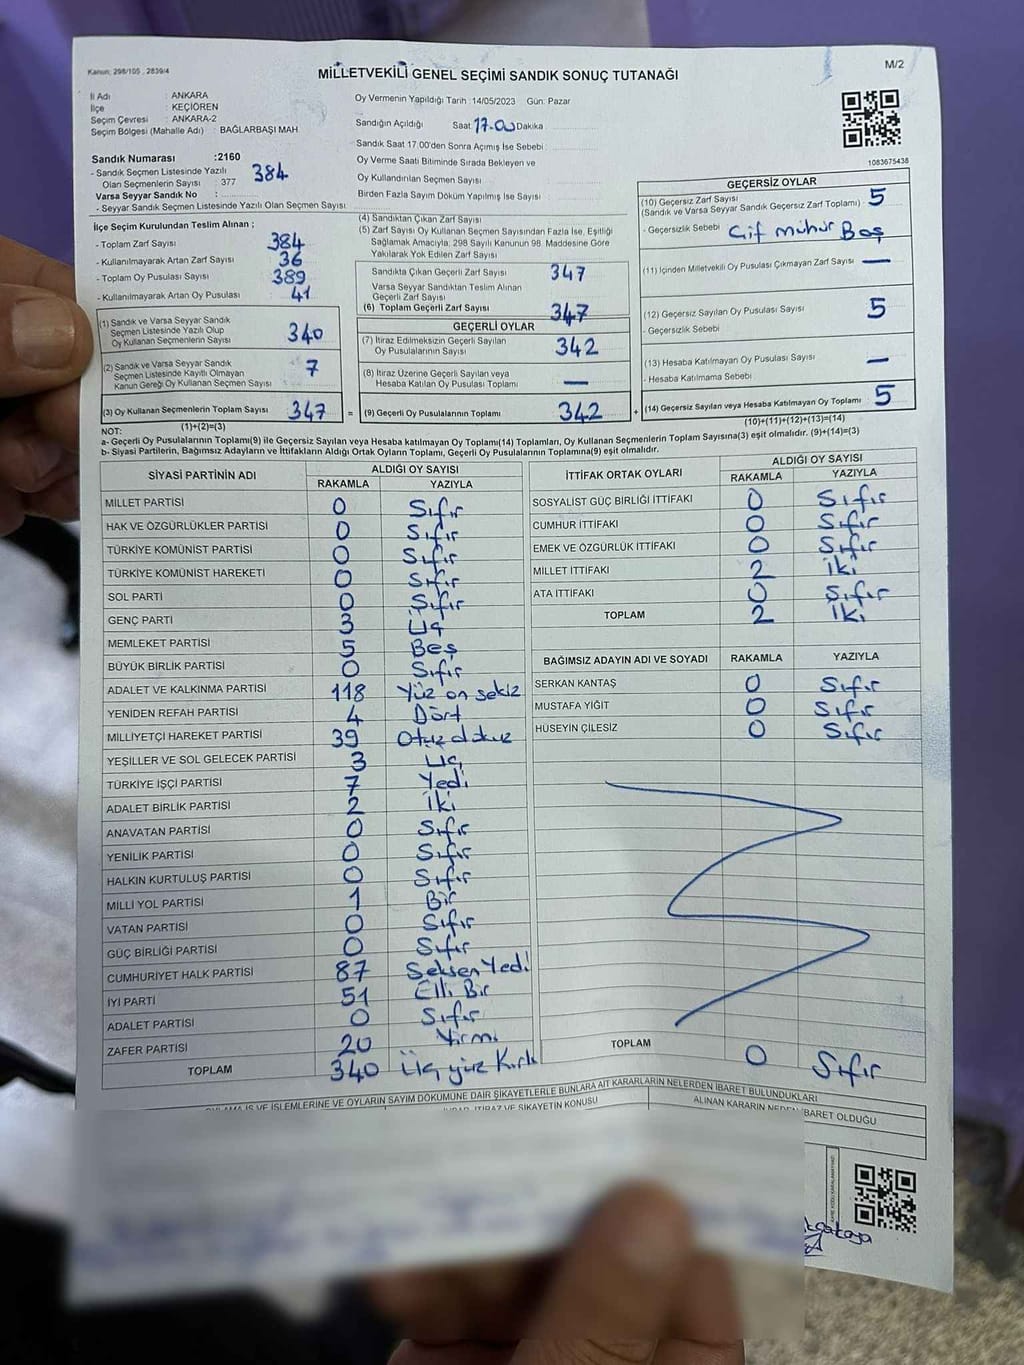 Kanun: 298/105 , 2839/4
MİLLETVEKİLİ GENEL SEÇİMİ SANDIK SONUÇ TUTANAĞI
M/2
İl Adı : ANKARA
İlçe : KEÇİÖREN
Seçim Çevresi : ANKARA-2
Seçim Bölgesi (Mahalle Adı) : BAĞLARBAŞI MAH
Sandık Numarası :2160
- Sandık Seçmen Listesinde Yazılı
Olan Seçmenlerin Sayısı : 377 384
Varsa Seyyar Sandık No :
- Seyyar Sandık Seçmen Listesinde Yazılı Olan Seçmen Sayısı:
Oy Vermenin Yapıldığı Tarih :14/05/2023 Gün: Pazar
Sandığın Açıldığı Saat: 17.00 Dakika
Sandık Saat 17.00'den Sonra Açılmış İse Sebebi :
Oy Verme Saati Bitiminde Sırada Bekleyen ve
Oy Kullandırılan Seçmen Sayısı :
Birden Fazla Sayım Döküm Yapılmış İse Sayısı :
1083675438
İlçe Seçim Kurulundan Teslim Alınan ;
- Toplam Zarf Sayısı 384
- Kullanılmayarak Artan Zarf Sayısı 36
- Toplam Oy Pusulası Sayısı 389
- Kullanılmayarak Artan Oy Pusulası 41
(1) Sandık ve Varsa Seyyar Sandık
Seçmen Listesinde Yazılı Olup
Oy Kullanan Seçmenlerin Sayısı 340
(2) Sandık ve Varsa Seyyar Sandık
Seçmen Listesinde Kayıtlı Olmayan
Kanun Gereği Oy Kullanan Seçmen Sayısı 7
(3) Oy Kullanan Seçmenlerin Toplam Sayısı 347 =
(1)+(2)=(3)
(4) Sandıktan Çıkan Zarf Sayısı
(5) Zarf Sayısı Oy Kullanan Seçmen Sayısından Fazla İse, Eşitliği
Sağlamak Amacıyla, 298 Sayılı Kanunun 98. Maddesine Göre
Yakılarak Yok Edilen Zarf Sayısı
Sandıkta Çıkan Geçerli Zarf Sayısı 347
Varsa Seyyar Sandıktan Teslim Alınan
Geçerli Zarf Sayısı
(6) Toplam Geçerli Zarf Sayısı 347
GEÇERLİ OYLAR
(7) İtiraz Edilmeksizin Geçerli Sayılan
Oy Pusulalarının Sayısı 342
(8) İtiraz Üzerine Geçerli Sayılan veya
Hesaba Katılan Oy Pusulası Toplamı —
(9) Geçerli Oy Pusulalarının Toplamı 342 +
GEÇERSİZ OYLAR
(10) Geçersiz Zarf Sayısı 5
(Sandık ve Varsa Seyyar Sandık Geçersiz Zarf Toplamı)
- Geçersizlik Sebebi Çif mühür Boş
(11) İçinden Milletvekili Oy Pusulası Çıkmayan Zarf Sayısı —
(12) Geçersiz Sayılan Oy Pusulası Sayısı 5
- Geçersizlik Sebebi
(13) Hesaba Katılmayan Oy Pusulası Sayısı —
- Hesaba Katılmama Sebebi
(14) Geçersiz Sayılan veya Hesaba Katılmayan Oy Toplamı 5
(10)+(11)+(12)+(13)=(14)
NOT:
a- Geçerli Oy Pusulalarının Toplamı(9) ile Geçersiz Sayılan veya Hesaba katılmayan Oy Toplamı(14) Toplamları, Oy Kullanan Seçmenlerin Toplam Sayısına(3) eşit olmalıdır. (9)+(14)=(3)
b- Siyasi Partilerin, Bağımsız Adayların ve İttifakların Aldığı Ortak Oyların Toplamı, Geçerli Oy Pusulalarının Toplamına(9) eşit olmalıdır.
SİYASİ PARTİNİN ADI ALDIĞI OY SAYISI
RAKAMLA YAZIYLA
MİLLET PARTİSİ 0 Sıfır
HAK VE ÖZGÜRLÜKLER PARTİSİ 0 Sıfır
TÜRKİYE KOMÜNİST PARTİSİ 0 Sıfır
TÜRKİYE KOMÜNİST HAREKETİ 0 Sıfır
SOL PARTİ 0 Sıfır
GENÇ PARTİ 3 Üç
MEMLEKET PARTİSİ 5 Beş
BÜYÜK BİRLİK PARTİSİ 0 Sıfır
ADALET VE KALKINMA PARTİSİ 118 Yüz on sekiz
YENİDEN REFAH PARTİSİ 4 Dört
MİLLİYETÇİ HAREKET PARTİSİ 39 Otuz dokuz
YEŞİLLER VE SOL GELECEK PARTİSİ 3 Üç
TÜRKİYE İŞÇİ PARTİSİ 7 Yedi
ADALET BİRLİK PARTİSİ 2 İki
ANAVATAN PARTİSİ 0 Sıfır
YENİLİK PARTİSİ 0 Sıfır
HALKIN KURTULUŞ PARTİSİ 0 Sıfır
MİLLİ YOL PARTİSİ 1 Bir
VATAN PARTİSİ 0 Sıfır
GÜÇ BİRLİĞİ PARTİSİ 0 Sıfır
CUMHURİYET HALK PARTİSİ 87 Seksen Yedi
İYİ PARTİ 51 Elli Bir
ADALET PARTİSİ 0 Sıfır
ZAFER PARTİSİ 20 Yirmi
TOPLAM 340 Üç yüz Kırk
İTTİFAK ORTAK OYLARI ALDIĞI OY SAYISI
RAKAMLA YAZIYLA
SOSYALİST GÜÇ BİRLİĞİ İTTİFAKI 0 Sıfır
CUMHUR İTTİFAKI 0 Sıfır
EMEK VE ÖZGÜRLÜK İTTİFAKI 0 Sıfır
MİLLET İTTİFAKI 2 İki
ATA İTTİFAKI 0 Sıfır
TOPLAM 2 İki
BAĞIMSIZ ADAYIN ADI VE SOYADI RAKAMLA YAZIYLA
SERKAN KANTAŞ 0 Sıfır
MUSTAFA YİĞİT 0 Sıfır
HÜSEYİN ÇİLESİZ 0 Sıfır
TOPLAM 0 Sıfır
İŞ VE İŞLEMLERİNE VE OYLARIN SAYIM DÖKÜMÜNE DAİR ŞİKAYETLERLE BUNLARA AİT KARARLARIN NELERDEN İBARET BULUNDUKLARI
İTİRAZ VE ŞİKAYETİN KONUSU
ALINAN KARARIN NEDEN İBARET OLDUĞU